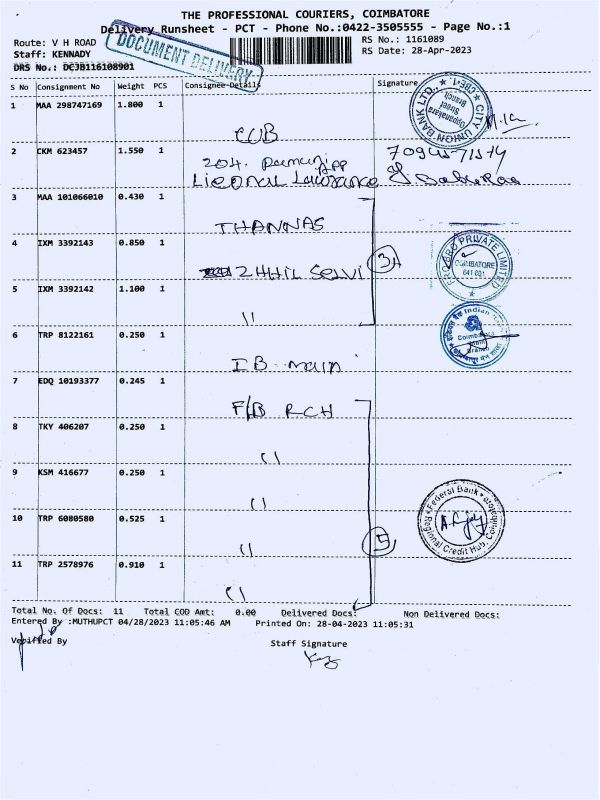 THE PROFESSIONAL COURIERS, COIMBATORE
Delivery Runsheet - PCT - Phone No.:0422-3505555 - Page No.:1
Route: V H ROAD
RS No.: 1161089
Staff: KENNADY
RS Date: 28-Apr-2023
DRS No.: DCJB116108901
DOCUMENT DELIVERY
S No Consignment No Weight PCS Consignee Details Signature
1 MAA 298747169 1.800 1
CUB
CITY UNION BANK LTD., CBE-1.
Oppanakara Street Branch
2 CKM 623457 1.550 1
204.
3 MAA 101066010 0.430 1
THANNAS
4 IXM 3392143 0.850 1
SELVI
PRIVATE LIMITED
COIMBATORE
641 001
5 IXM 3392142 1.100 1
11
6 TRP 8122161 0.250 1
IB main
Indian
Coimbatore
Main
Branch
7 EDQ 10193377 0.245 1
F/B RCH
8 TKY 406207 0.250 1
11
9 KSM 416677 0.250 1
11
10 TRP 6080580 0.525 1
11
5
Federal Bank
Regional Credit Hub, Coimbatore
11 TRP 2578976 0.910 1
11
Total No. Of Docs: 11 Total COD Amt: 0.00 Delivered Docs: Non Delivered Docs:
Entered By :MUTHUPCT 04/28/2023 11:05:46 AM Printed On: 28-04-2023 11:05:31
Verified By Staff Signature